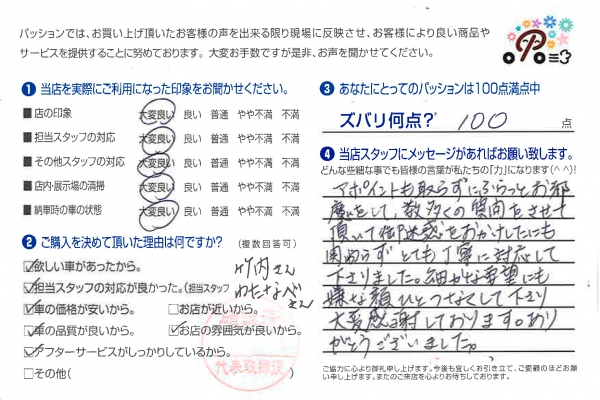 パッションでは、お買い上げ頂いたお客様の声を出来る限り現場に反映させ、お客様により良い商品や
サービスを提供することに努めております。大変お手数ですが是非、お声を聞かせてください。
❶ 当店を実際にご利用になった印象をお聞かせください。
■ 店の印象 大変良い 良い 普通 やや不満 不満
■ 担当スタッフの対応 大変良い 良い 普通 やや不満 不満
■ その他スタッフの対応 大変良い 良い 普通 やや不満 不満
■ 店内・展示場の清掃 大変良い 良い 普通 やや不満 不満
■ 納車時の車の状態 大変良い 良い 普通 やや不満 不満
❷ ご購入を決めて頂いた理由は何ですか? (複数回答可)
☑欲しい車があったから。
☑担当スタッフの対応が良かった。(担当スタッフ 竹内さん
わたなべさん
☑車の価格が安いから。 □お店が近いから。
☑車の品質が良いから。 ☑お店の雰囲気が良いから。
☑アフターサービスがしっかりしているから。
□その他( )
代表取締役
❸ あなたにとってのパッションは100点満点中
ズバリ何点? 100 点
❹ 当店スタッフにメッセージがあればお願い致します。
どんな些細な事でも皆様の言葉が私たちの「力」になります(^^)!
アポイントも取らずにぶらっとお邪
魔をして、数多くの質問をさせて
頂いて御迷惑をおかけしたにも
関わらずとても丁寧に対応して
下さりました。細かな要望にも
嫌な顔ひとつなくして下さり
大変感謝しております。あり
がとうございました。
ご協力に心より御礼申し上げます。今後も宜しくお引き立て、ご愛顧のほどお願
い申し上げます。またのご来店を心よりお待ちしております。